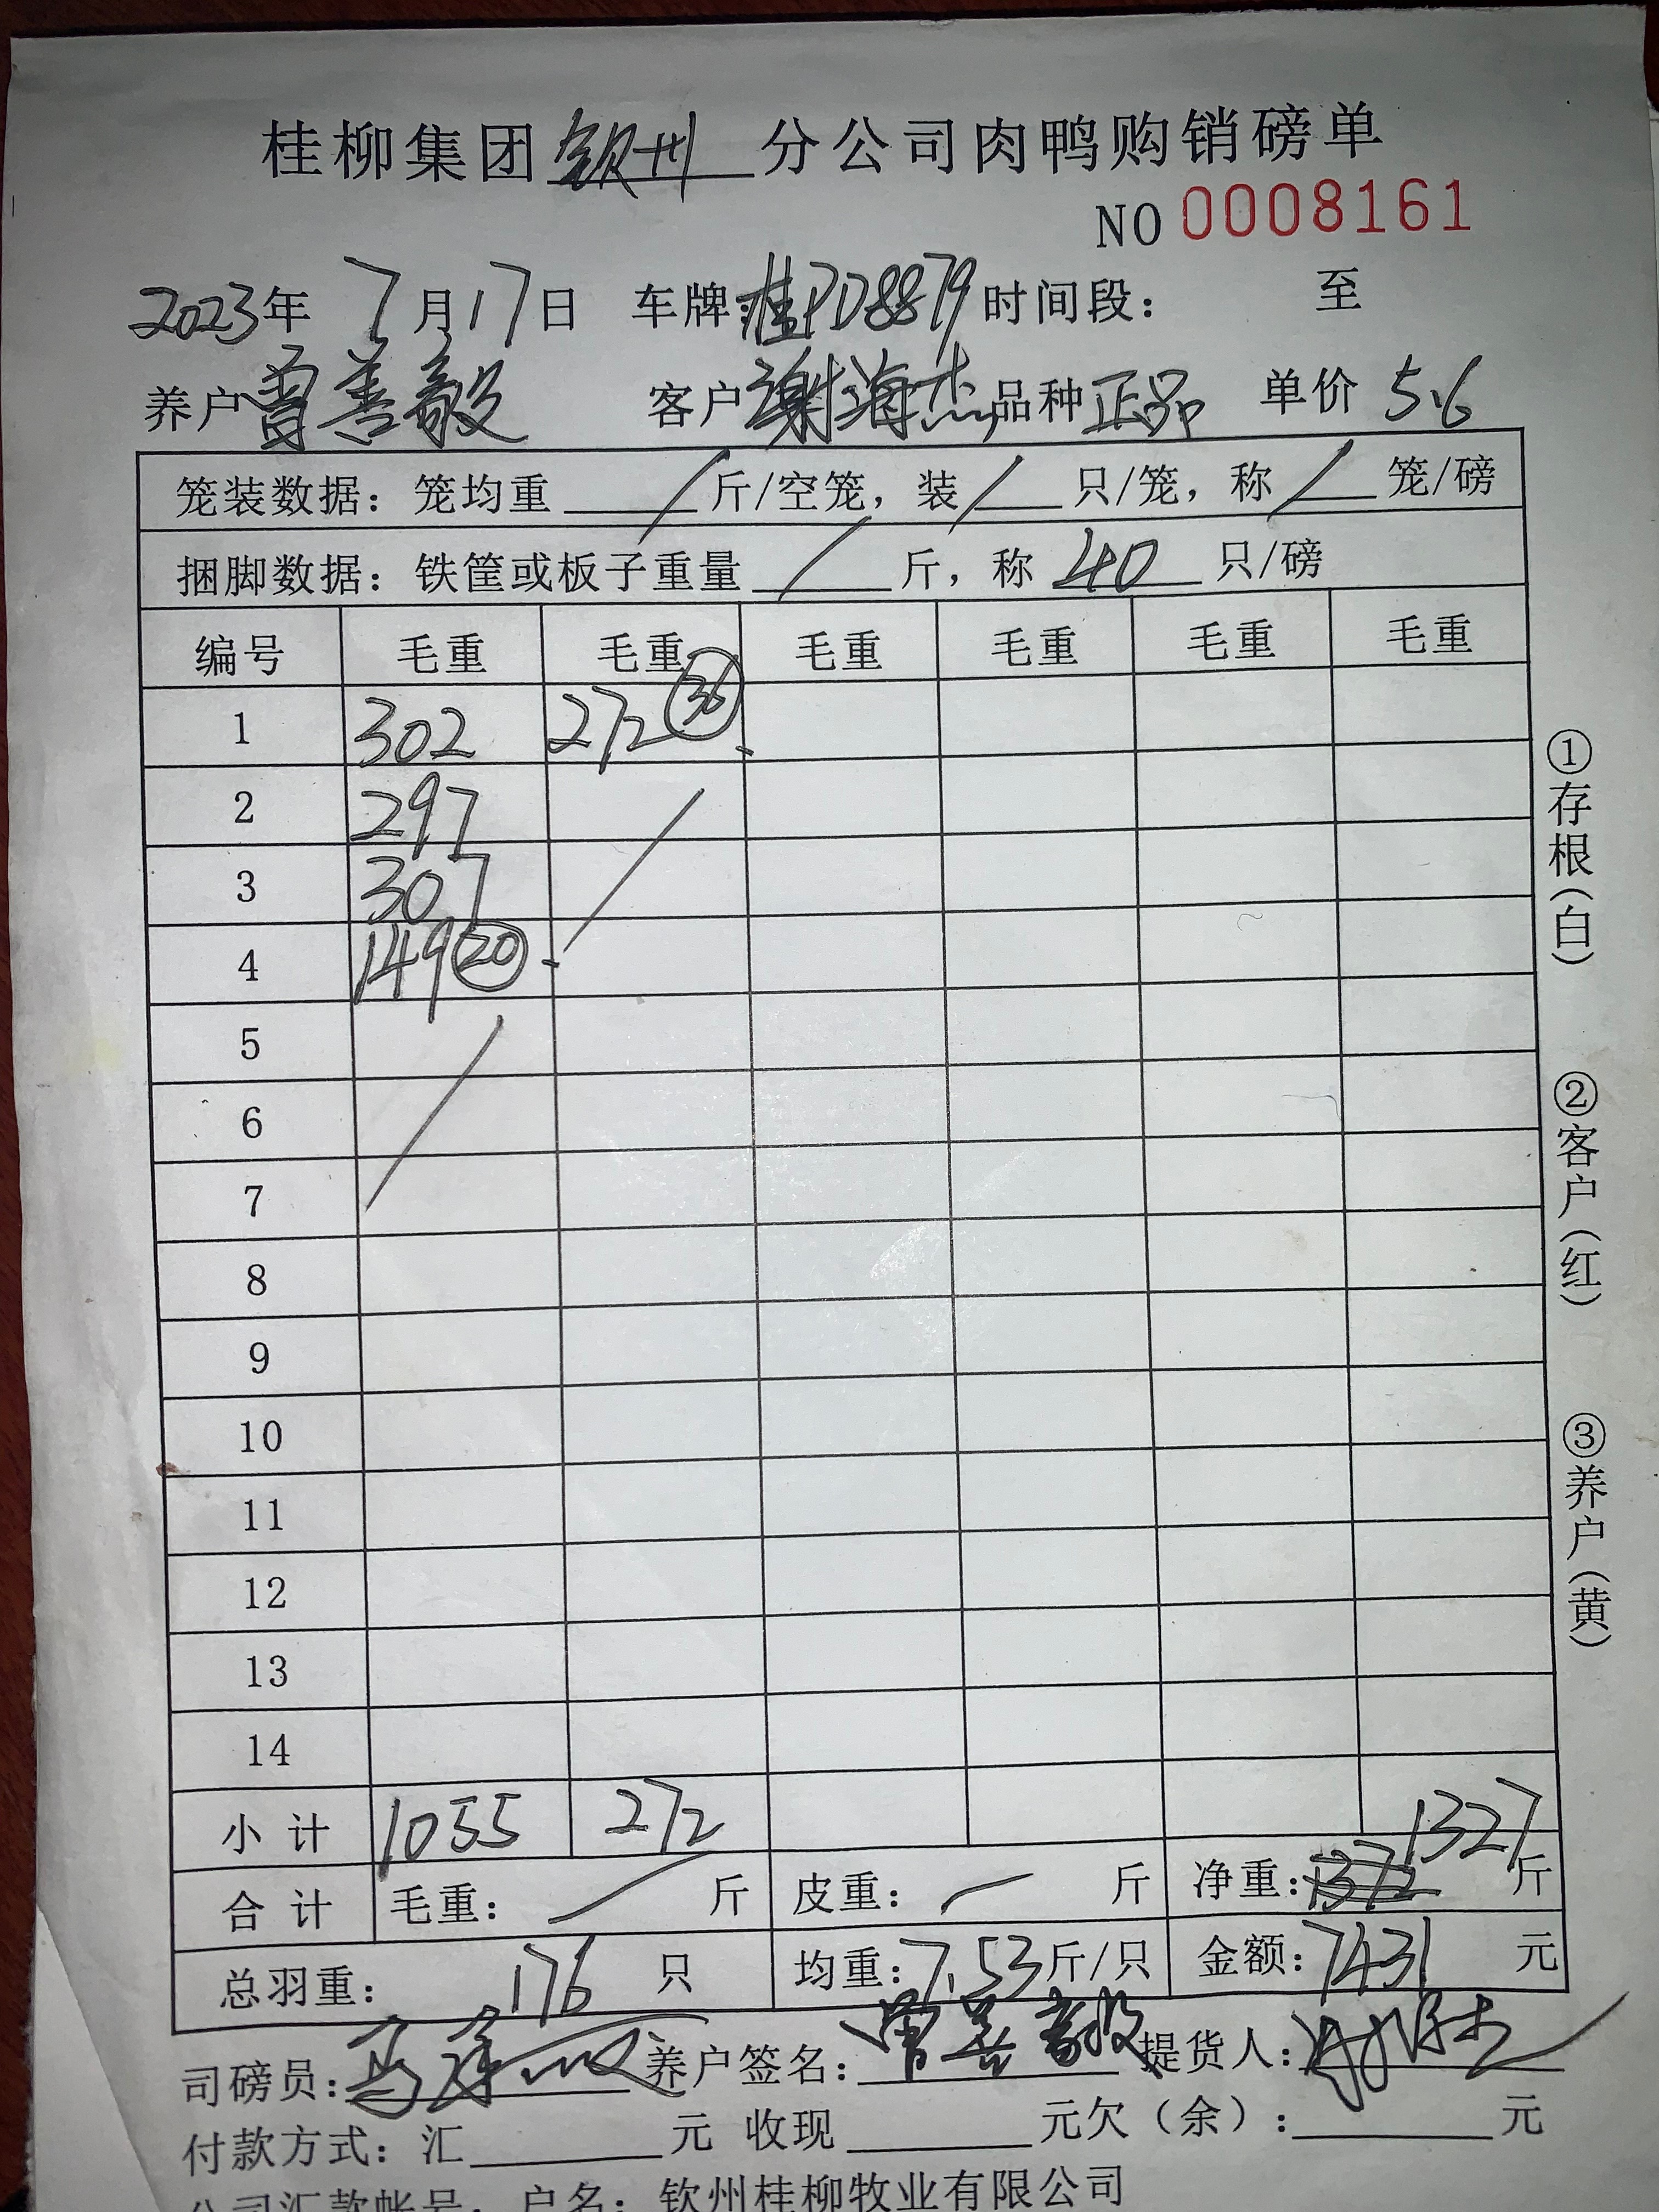 桂柳集团钦州分公司肉鸭购销磅单
NO 0008161
2023年 7月17日 车牌:桂PD8879 时间段: 至
养户曾善毅 客户谢海杰 品种正品 单价 5.6
笼装数据: 笼均重 / 斤/空笼, 装 / 只/笼, 称 / 笼/磅
捆脚数据: 铁筐或板子重量 / 斤, 称 40 只/磅
编号 毛重 毛重 毛重 毛重 毛重 毛重
1 302 272 ㊱
2 297
3 307
4 149 ⑳
5
6
7
8
9
10
11
12
13
14
小计 1055 272 1327
合计 毛重: / 斤 皮重: / 斤 净重: 1372 斤
总羽重: 176 只 均重: 7.53斤/只 金额: 7431 元
司磅员: 养户签名: 曾善毅 提货人:
付款方式: 汇 元 收现 元欠(余): 元
公司汇款帐号: 户名: 钦州桂柳牧业有限公司
①存根(白)
②客户(红)
③养户(黄)